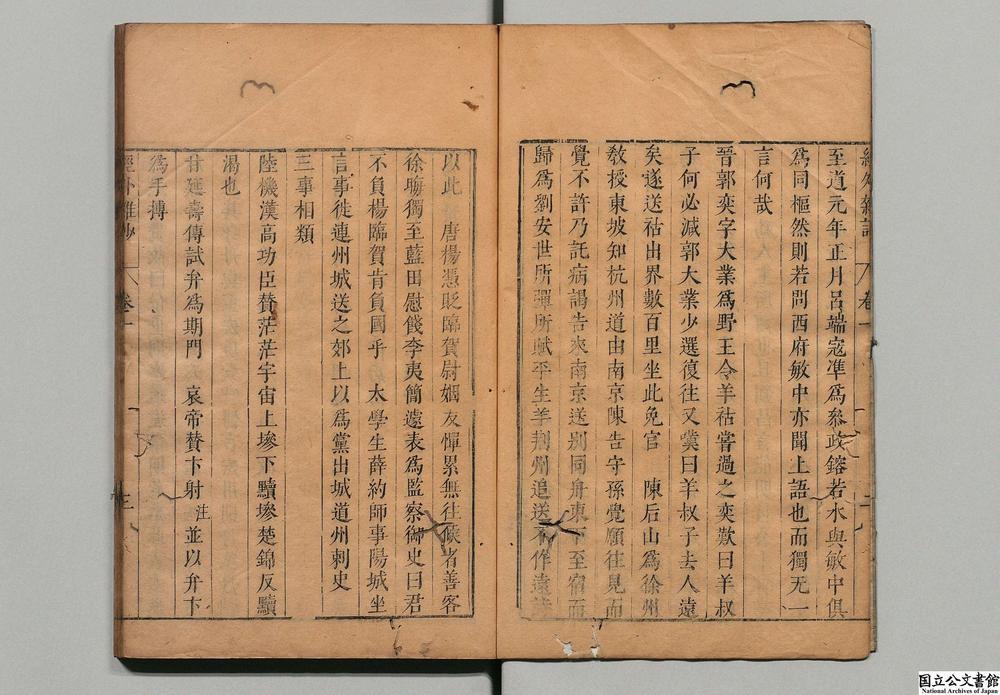 至道元年正月呂端寇準為參政鎔若水與敏中俱
為同樞然則若問西府敏中亦聞上語也而獨无一
言何哉
晉郭奕字大業為野王令羊祜嘗過之奕歎曰羊叔
子何必減郭大業少選復往又歎曰羊叔子去人遠
矣遂送祜出界數百里坐此免官　陳后山為徐州
教授東坡知杭州道由南京陳告守孫覺願往見而
覺不許乃託病謁告來南京送別同舟東下至宿而
歸為劉安世所彈所賦平生羊荆州追送不作遠
以此　唐楊憑貶臨賀尉姻友憚累無往候者善客
徐晦獨至藍田慰餞李夷簡遽表為監察御史曰君
不負楊臨賀肯負國乎　太學生薛約師事陽城坐
言事徙連州城送之郊上以為黨出城道州刺史
三事相類
陸機漢高功臣贊茫茫宇宙上墋下黷墋楚錦反黷
渴也
甘延壽傳試弁為期門　哀帝贊卞射注並以弁卞
為手搏
經外雜鈔　卷一　三
国立公文書館
National Archives of Japan